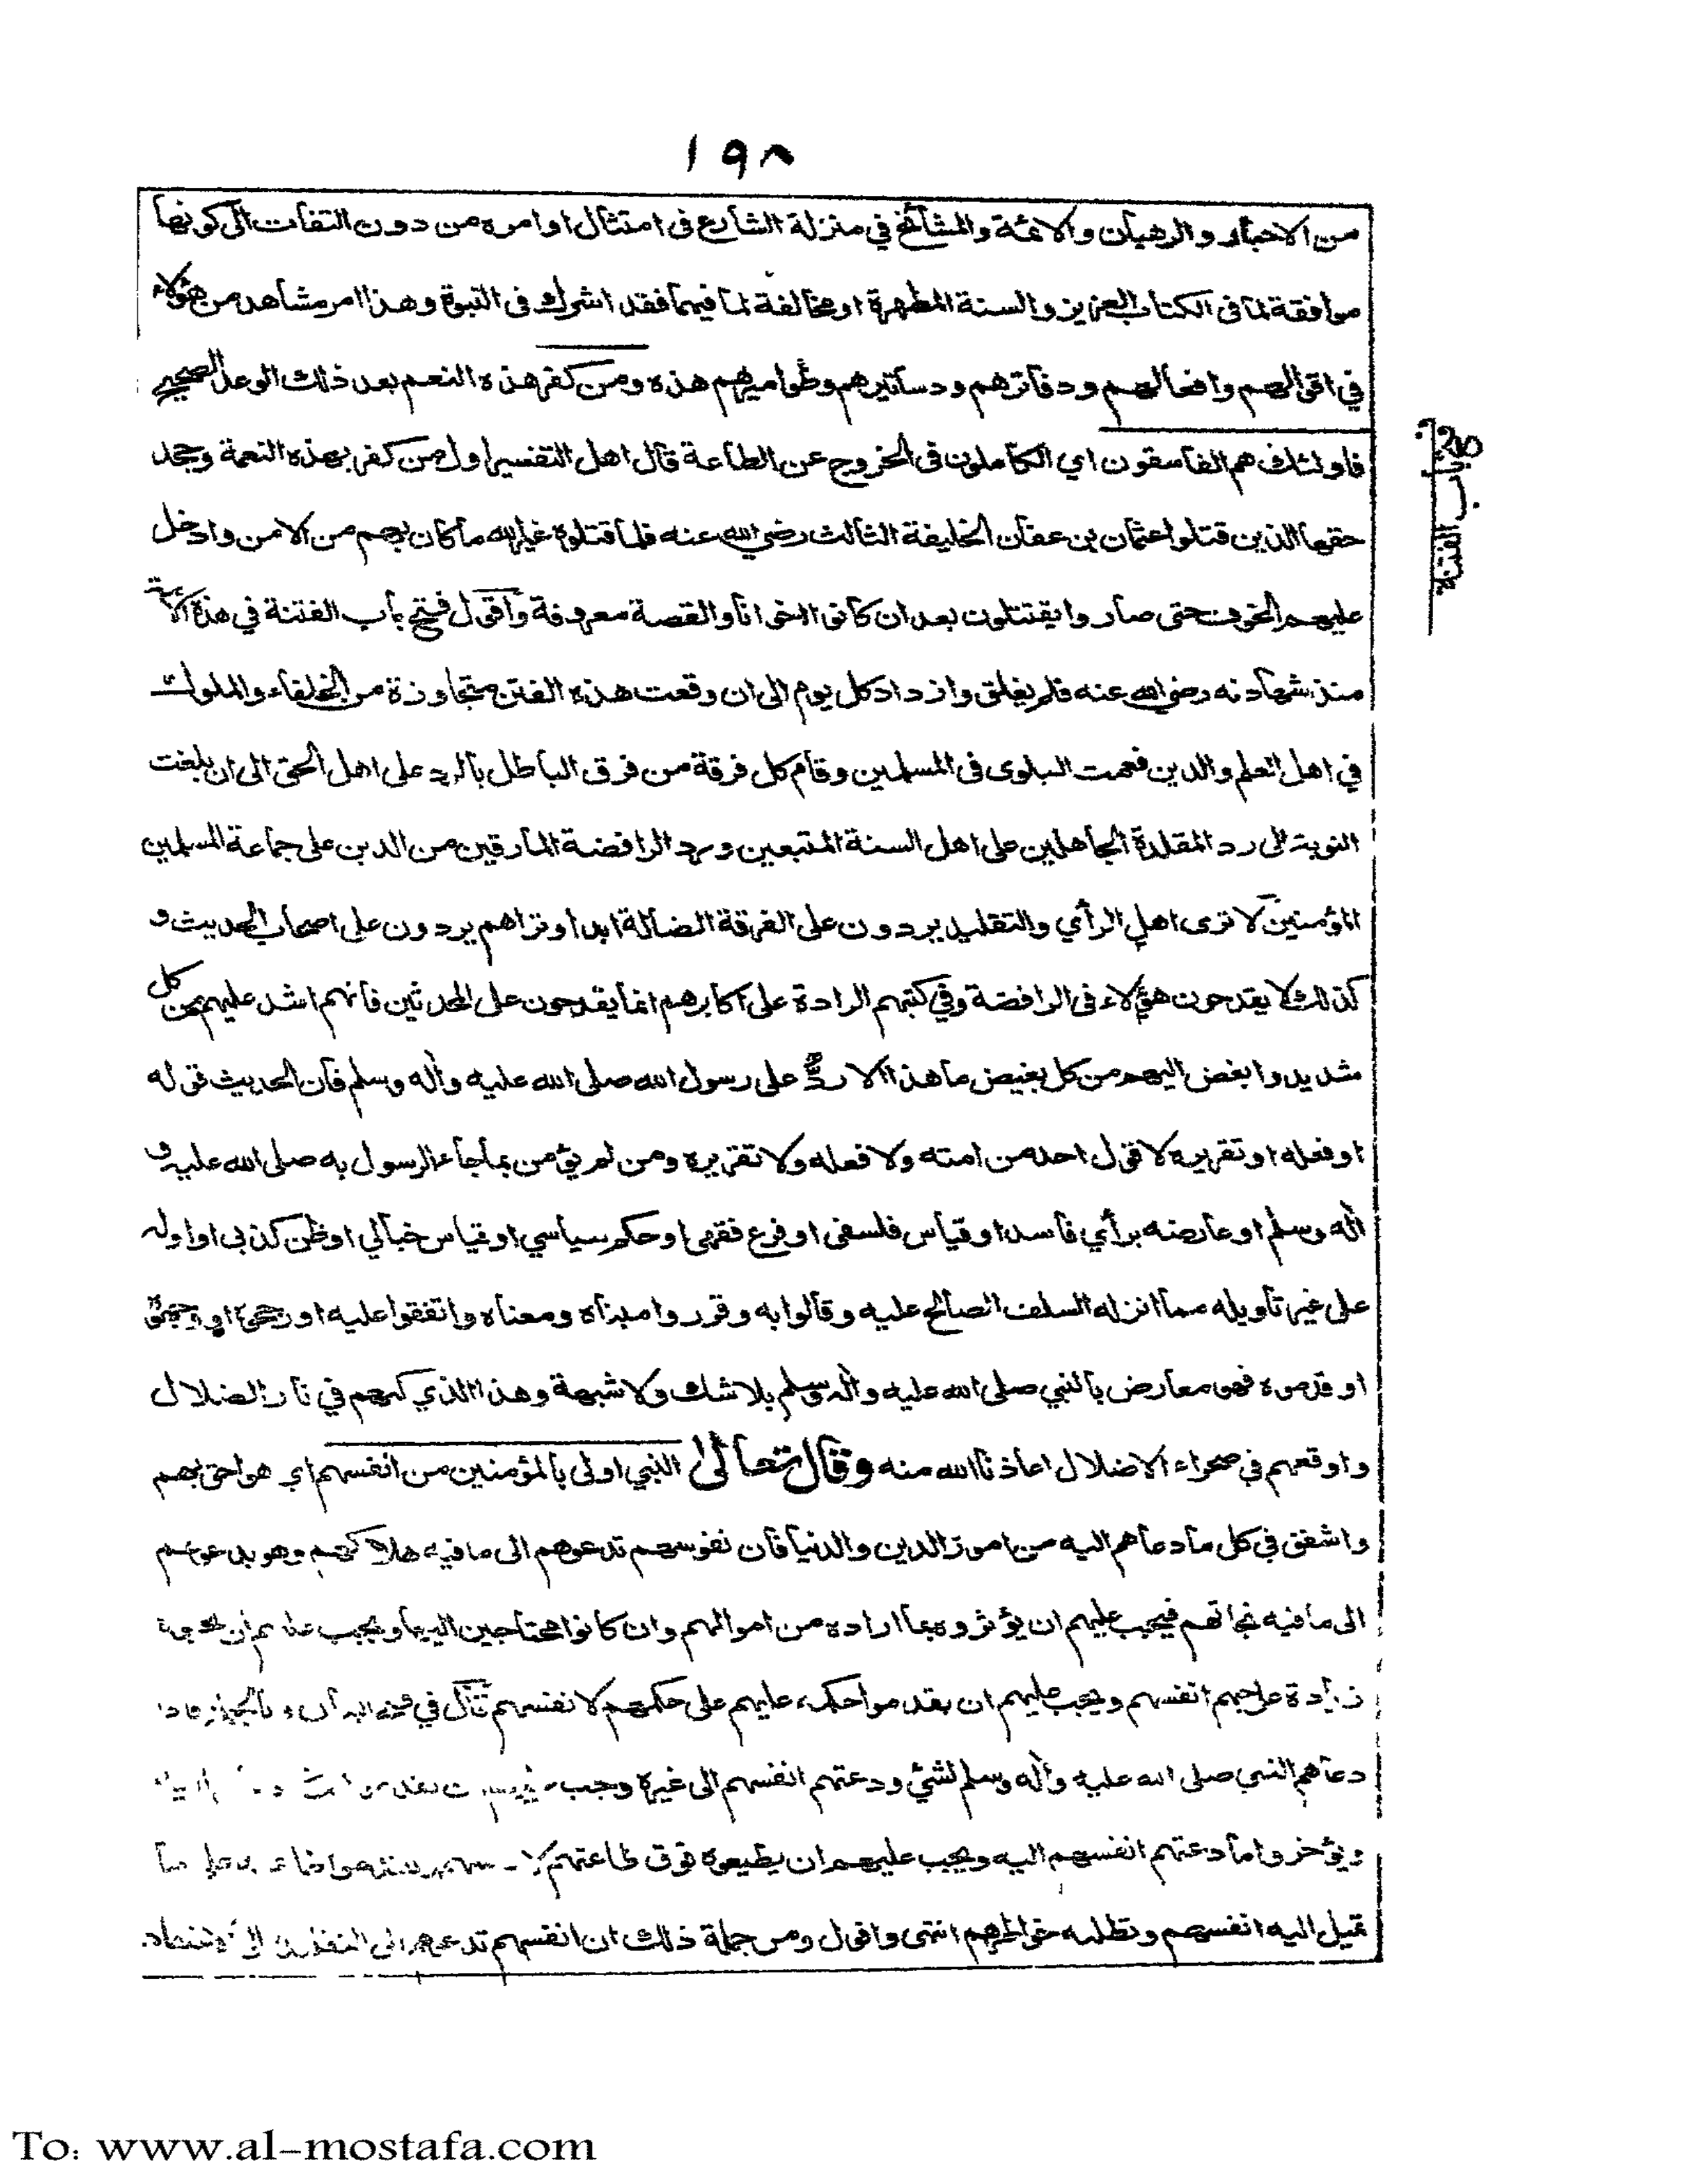 ١٩٨
من الاحبار والرهبان والائمة والمشائخ في منزلة الشارع في امتثال اوامره من دون التفات الى كونها
موافقة لما في الكتاب العزيز والسنة المطهرة او مخالفة لما فيهما فقد اشرك في النبوة وهذا امر مشاهد من هؤلاء
في اقوالهم وافعالهم ودفاترهم ودساتيرهم وطواميرهم هذه ومن كفر هذه النعم بعد ذلك الوعد الصحيح
فاولئك هم الفاسقون اي الكاملون في الخروج عن الطاعة قال اهل التفسير اول من كفر بهذه النعمة وجحد
حقها الذين قتلوا عثمان بن عفان الخليفة الثالث رضي الله عنه فلما قتلوه غير الله ما كان بهم من الامن وادخل
عليهم الخوف حتى صاروا يقتتلون بعد ان كانوا اخوانا والقصة معروفة واقول فتح باب الفتنة في هذه الامة
منذ شهادته رضي الله عنه فلم يغلق وازداد كل يوم الى ان وقعت هذه الفتن متجاوزة من الخلفاء والملوك
في اهل العلم والدين فعمت البلوى في المسلمين وقام كل فرقة من فرق الباطل بالرد على اهل الحق الى ان بلغت
النوبة الى رد المقلدة الجاهلين على اهل السنة المتبعين ورد الرافضة المارقين من الدين على جماعة المسلمين
المؤمنين لا ترى اهل الرأي والتقليد يردون على الفرقة الضالة ابدا وتراهم يردون على اصحاب الحديث و
كذلك لا يقدحون هؤلاء في الرافضة وفي كتبهم الرادة على اكابرهم انما يقدحون على المحدثين فانهم اشد عليهم من كل
شديد وابغض اليهم من كل بغيض ما هذا الا ردٌّ على رسول الله صلى الله عليه وآله وسلم فان الحديث قوله
او فعله او تقريره لا قول احد من امته ولا فعله ولا تقريره ومن لم يؤمن بما جاء الرسول به صلى الله عليه و
آله وسلم او عارضه برأي فاسد او قياس فلسفي او فرع فقهي او حكم سياسي او قياس خيالي او ظن كذبي او اوله
على غير تأويله مما انزله السلف الصالح عليه وقالوا به وقرروا مبناه ومعناه واتفقوا عليه او رجحوه او
او قدموه فهو معارض بالنبي صلى الله عليه وآله وسلم بلا شك ولا شبهة وهذا الذي كبهم في نار الضلال
واوقعهم في صحراء الاضلال اعاذنا الله منه وقال تعالى النبي اولى بالمؤمنين من انفسهم اي هو احق بهم
واشفق في كل ما دعاهم اليه من امور الدين والدنيا فان نفوسهم تدعوهم الى ما فيه هلاكهم وهو يدعوهم
الى ما فيه نجاتهم فيجب عليهم ان يؤثروه بما اراده من اموالهم وان كانوا محتاجين اليها ويجب عليهم ان يحبوه
زيادة على حبهم انفسهم ويجب عليهم ان يقدموا حكمه عليهم على حكمهم لانفسهم قال في فتح البيان وبالجملة فاذا
دعاهم النبي صلى الله عليه وآله وسلم لشيء ودعتهم انفسهم الى غيره وجب عليهم ان يقدموا
ويؤخروا ما دعتهم انفسهم اليه ويجب عليهم ان يطيعوه فوق طاعتهم لانفسهم ويقدموا طاعته على ما
تميل اليه انفسهم وتطلبه خواطرهم انتهى واقول ومن جملة ذلك ان انفسهم تدعوهم الى التقليد
فتح باب الفتنة
To: www.al-mostafa.com